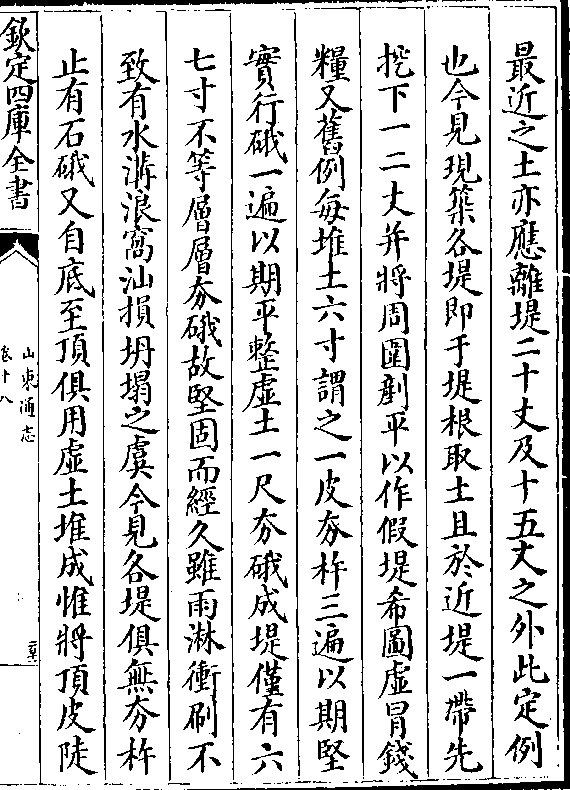 最近之土亦應離堤二十丈及十五丈之外此定例
也今見現築各堤即于堤根取土且於近堤一帶先
挖下一二丈并將周圍剷平以作假堤希圖虛冒錢
糧又舊例每堆土六寸謂之一皮夯杵三遍以期堅
實行硪一遍以期平整虛土一尺夯硪成堤僅有六
七寸不等層層夯硪故堅固而經久雖雨淋衝刷不
致有水溝浪窩汕損坍塌之虞今見各堤俱無夯杵
止有石硪又自底至頂俱用虛土堆成惟將頂皮陡
欽定四庫全書
山東通志
卷十八